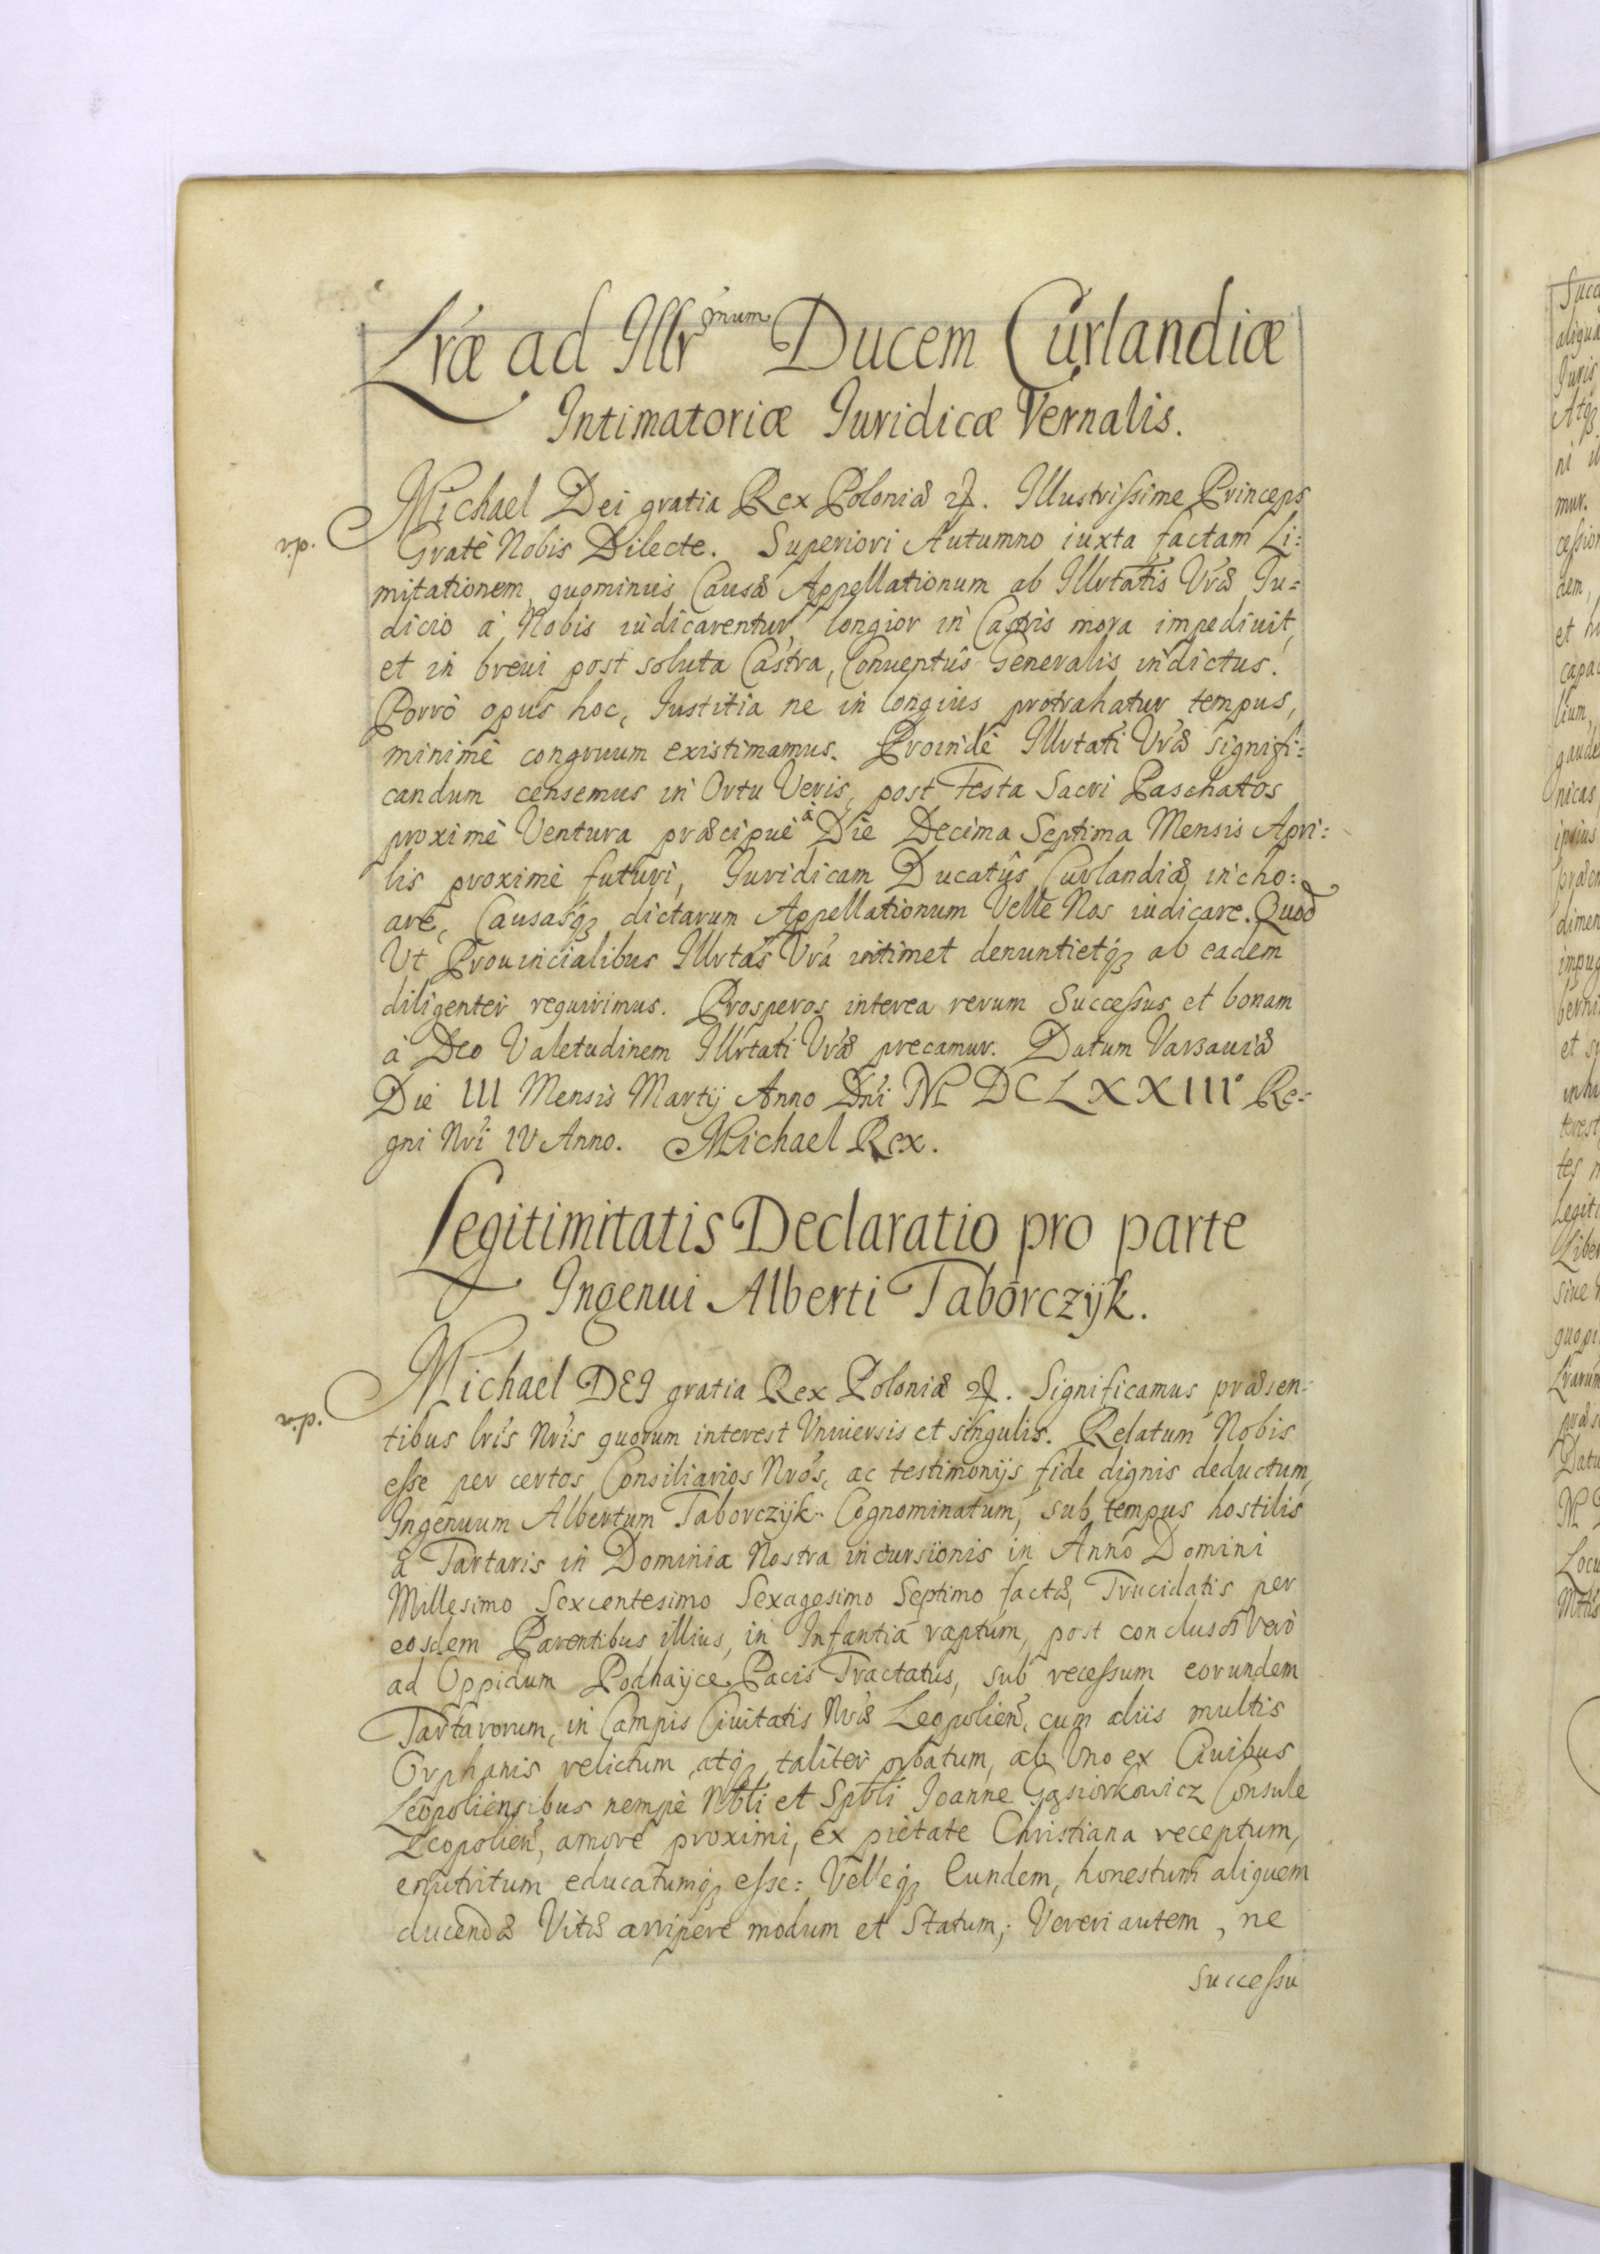 Lræ ad Illr^mum Ducem Curlandiæ
Intimatoriæ Iuridicæ Vernalis.
Michael Dei gratia Rex Poloniæ &. Illustrissime Princeps
Gratè Nobis Dilecte. Superiori Autumno iuxta factam Li:
mitationem, quominus Causæ Appellationum ab Illrtatis Vræ Iu=
dicio à Nobis iudicarentur, longior in Castris mora impediuit,
et in breui post soluta Castra, Conuentus Generalis indictus.
Porrò opus hoc, Iustitia ne in longius protrahatur tempus,
minimè congruum existimamus. Proindè Illrtati Vræ signifi:
candum censemus in Ortu Veris, post Festa Sacri Paschatos
proximè Ventura præcipuè à Die Decima Septima Mensis Apri:
lis proximè futuri, Iuridicam Ducatûs Curlandiæ incho:
are, Causasq3 dictarum Appellationum Velle Nos iudicare. Quod
Ut Prouincialibus Illrtas Vra intimet denuntietq3 ab eadem
diligenter requirimus. Prosperos interea rerum Successus et bonam
à Deo Valetudinem Illrtati Vræ precamur. Datum Varsauiæ
Die III Mensis Martij Anno Dni M DC LXXIII° Re:
gni Nri IV Anno. Michael Rex.
Legitimitatis Declaratio pro parte
Ingenui Alberti Taborczÿk.
Michael DEI gratia Rex Poloniæ &. Significamus præsen:
tibus lris Nris quorum interest Vniuersis et singulis. Relatum Nobis
esse per certos Consiliarios Nros, ac testimonijs fide dignis deductum,
Ingenuum Albertum Taborczÿk Cognominatum, sub tempus hostilis
à Tartaris in Dominia Nostra incursionis in Anno Domini
Millesimo Sexcentesimo Sexagesimo Septimo factæ, Trucidatis per
eosdem Parentibus illius, in Infantia raptum, post conclusos Verò
ad Oppidum Podhaÿce Pacis Tractatus, sub recessum eorundem
Tartarorum, in Campis Ciuitatis Nræ Leopolien, cum aliis multis
Orphanis relictum, atq3 taliter orbatum, ab Vno ex Ciuibus
Leopoliensibus nempè Nbli et Spbli Ioanne Gąsiorkowicz Consule
Leopolien, amore proximi, ex pietate Christiana receptum,
enutritum educatumq3 esse: Velleq3 Eundem, honestum aliquem
ducendæ Vitæ arripere modum et Statum; Vereri autem, ne
successu